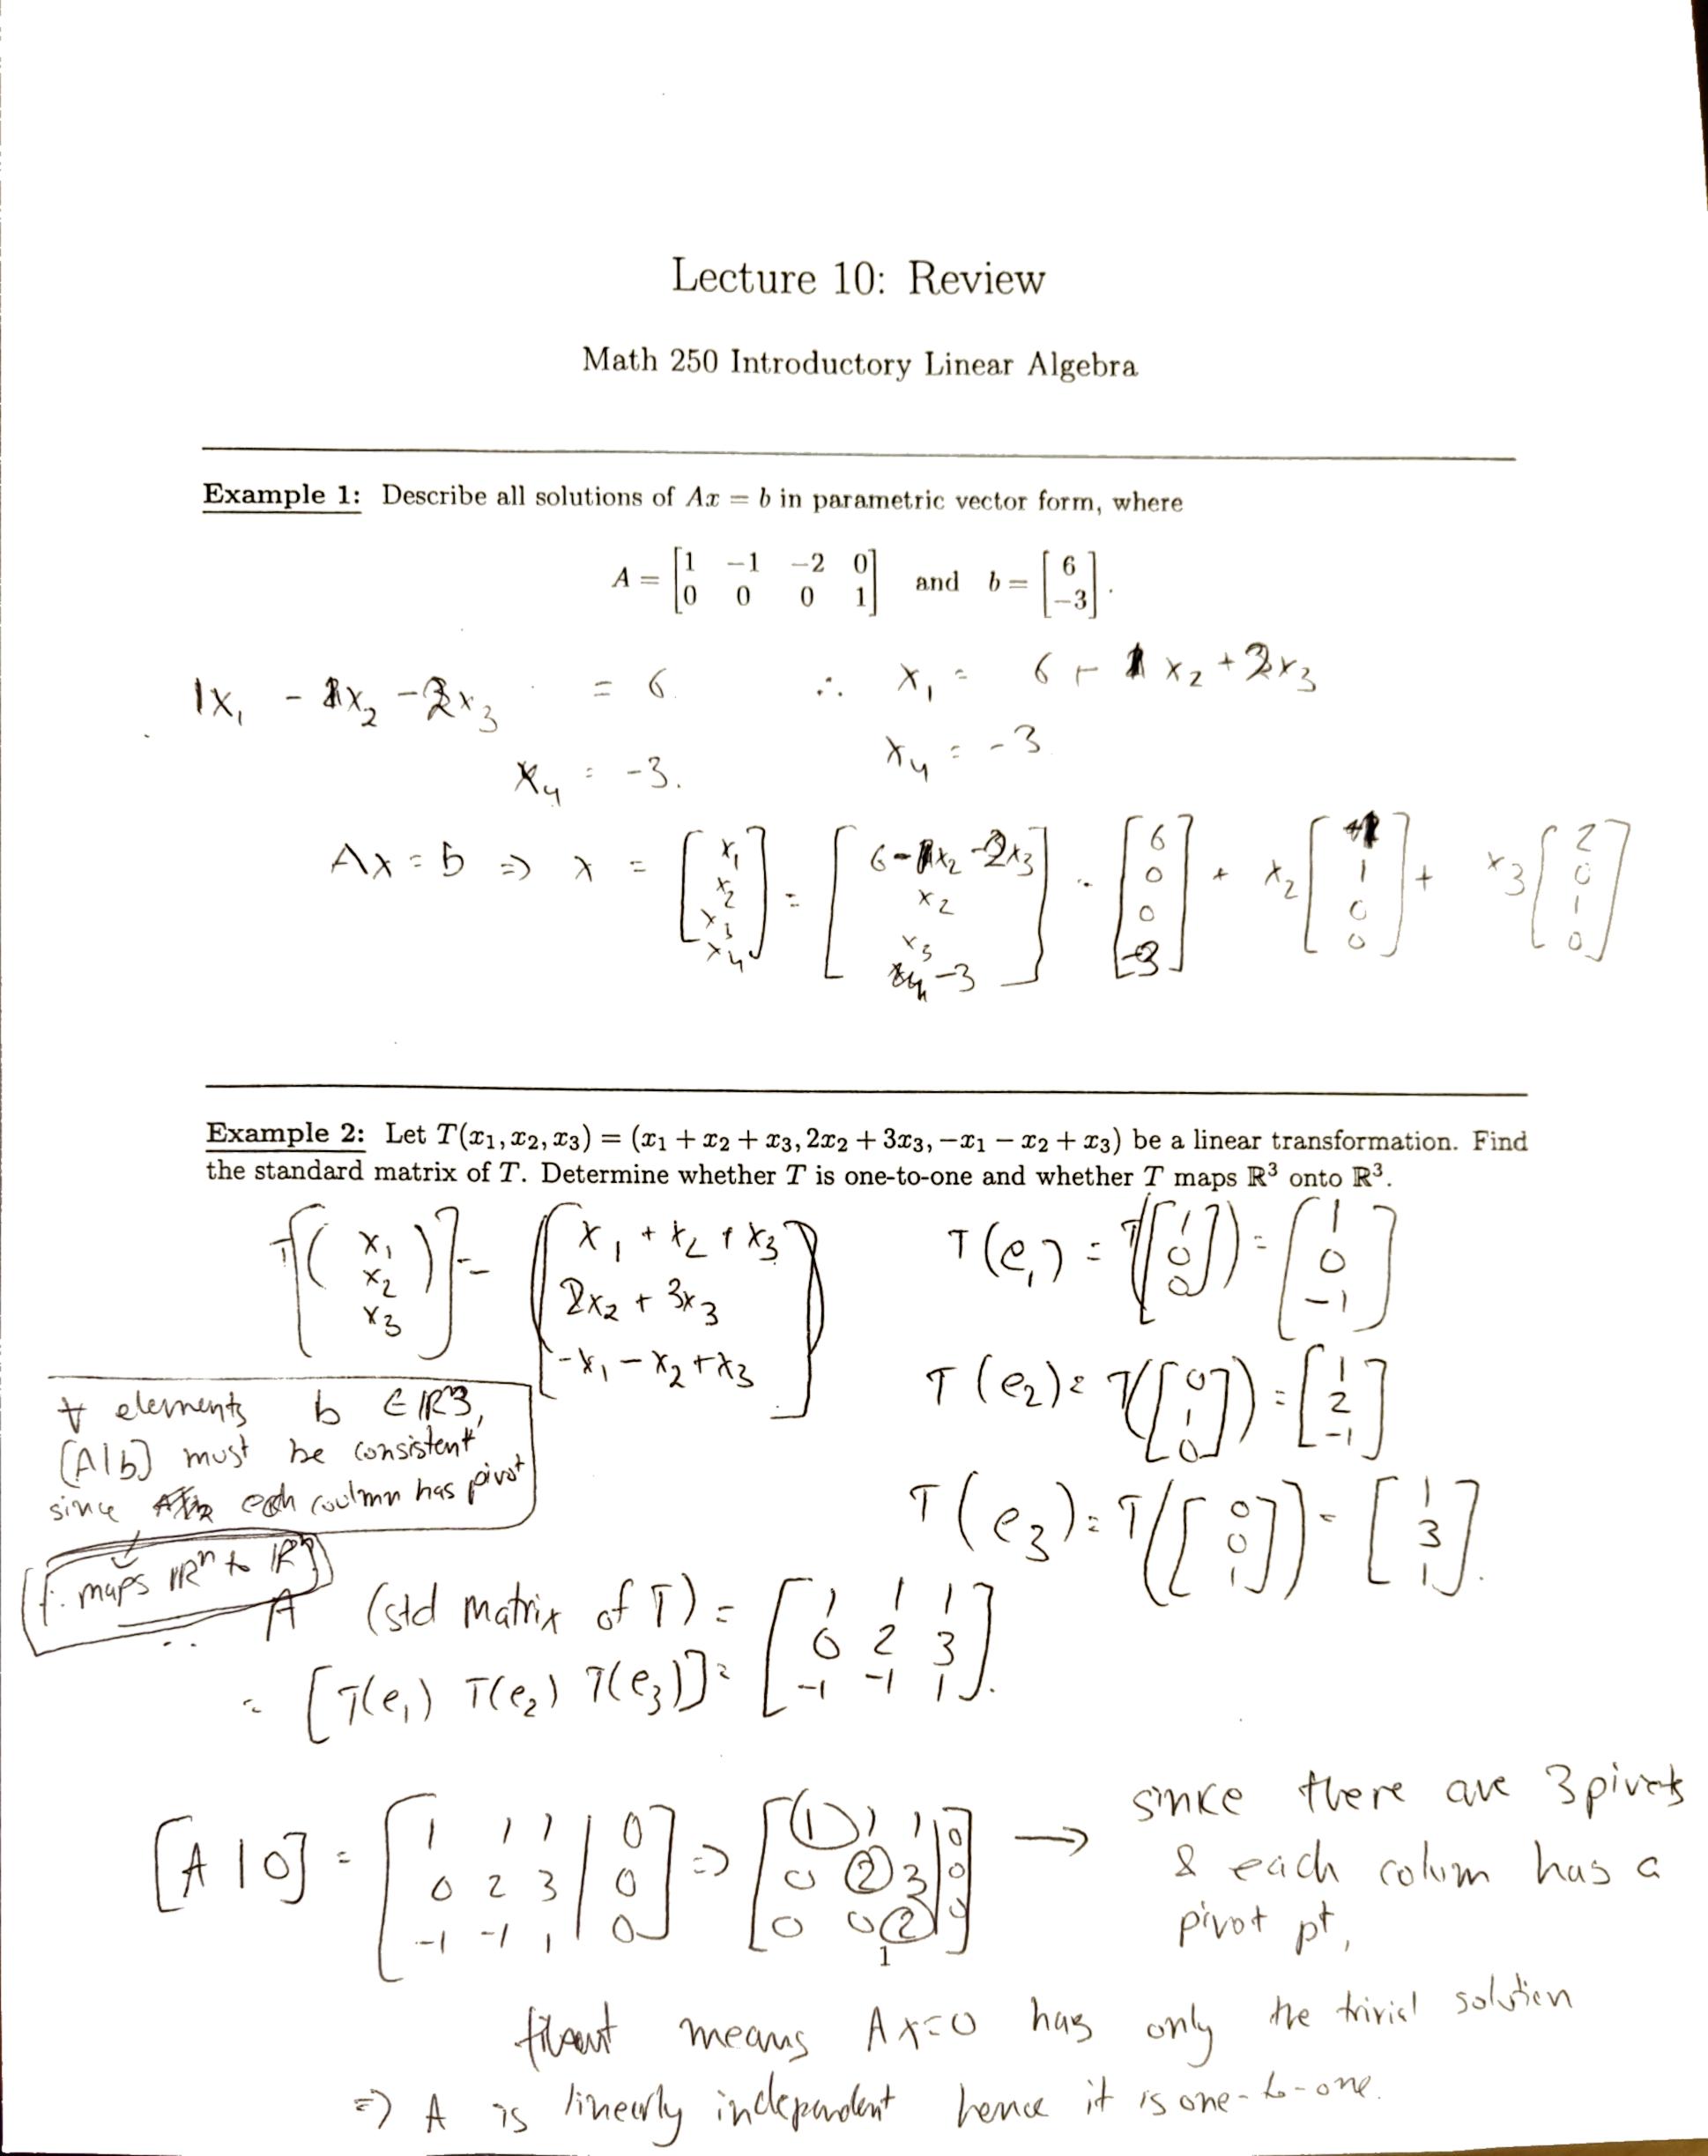 Lecture 10: Review
Math 250 Introductory Linear Algebra
Example 1: Describe all solutions of Ax = b in parametric vector form, where
A = [1 −1 −2 0; 0 0 0 1] and b = [6; −3].
1x₁ - 1x₂ - 2x₃ = 6. ∴ x₁ = 6 + 1x₂ + 2x₃
x₄ = -3. x₄ = -3
Ax = b ⇒ x = [x₁; x₂; x₃; x₄] = [6 - 1x₂ - 2x₃; x₂; x₃; -3] = [6; 0; 0; -3] + x₂[1; 1; 0; 0] + x₃[2; 0; 1; 0]
Example 2: Let T(x₁, x₂, x₃) = (x₁ + x₂ + x₃, 2x₂ + 3x₃, −x₁ − x₂ + x₃) be a linear transformation. Find
the standard matrix of T. Determine whether T is one-to-one and whether T maps ℝ³ onto ℝ³.
T([x₁; x₂; x₃]) = [x₁ + x₂ + x₃; 2x₂ + 3x₃; -x₁ - x₂ + x₃]
T(e₁) = T([1; 0; 0]) = [1; 0; -1]
T(e₂) = T([0; 1; 0]) = [1; 2; -1]
T(e₃) = T([0; 0; 1]) = [1; 3; 1].
∀ elements b ∈ ℝ3,
[A|b] must be consistent
since each coulmn has pivot
∴ maps ℝⁿ to ℝⁿ
∴ A (std matrix of T) = [1 1 1; 0 2 3; -1 -1 1].
= [T(e₁) T(e₂) T(e₃)] =
[A | 0] = [1 1 1 | 0; 0 2 3 | 0; -1 -1 1 | 0] ⇒ [1 1 1 | 0; 0 2 3 | 0; 0 0 2 | 0] → since there are 3 pivots
& each colum has a
pivot pt,
1
means Ax=0 has only the trivial solution
⇒ A is linearly independent hence it is one-to-one.